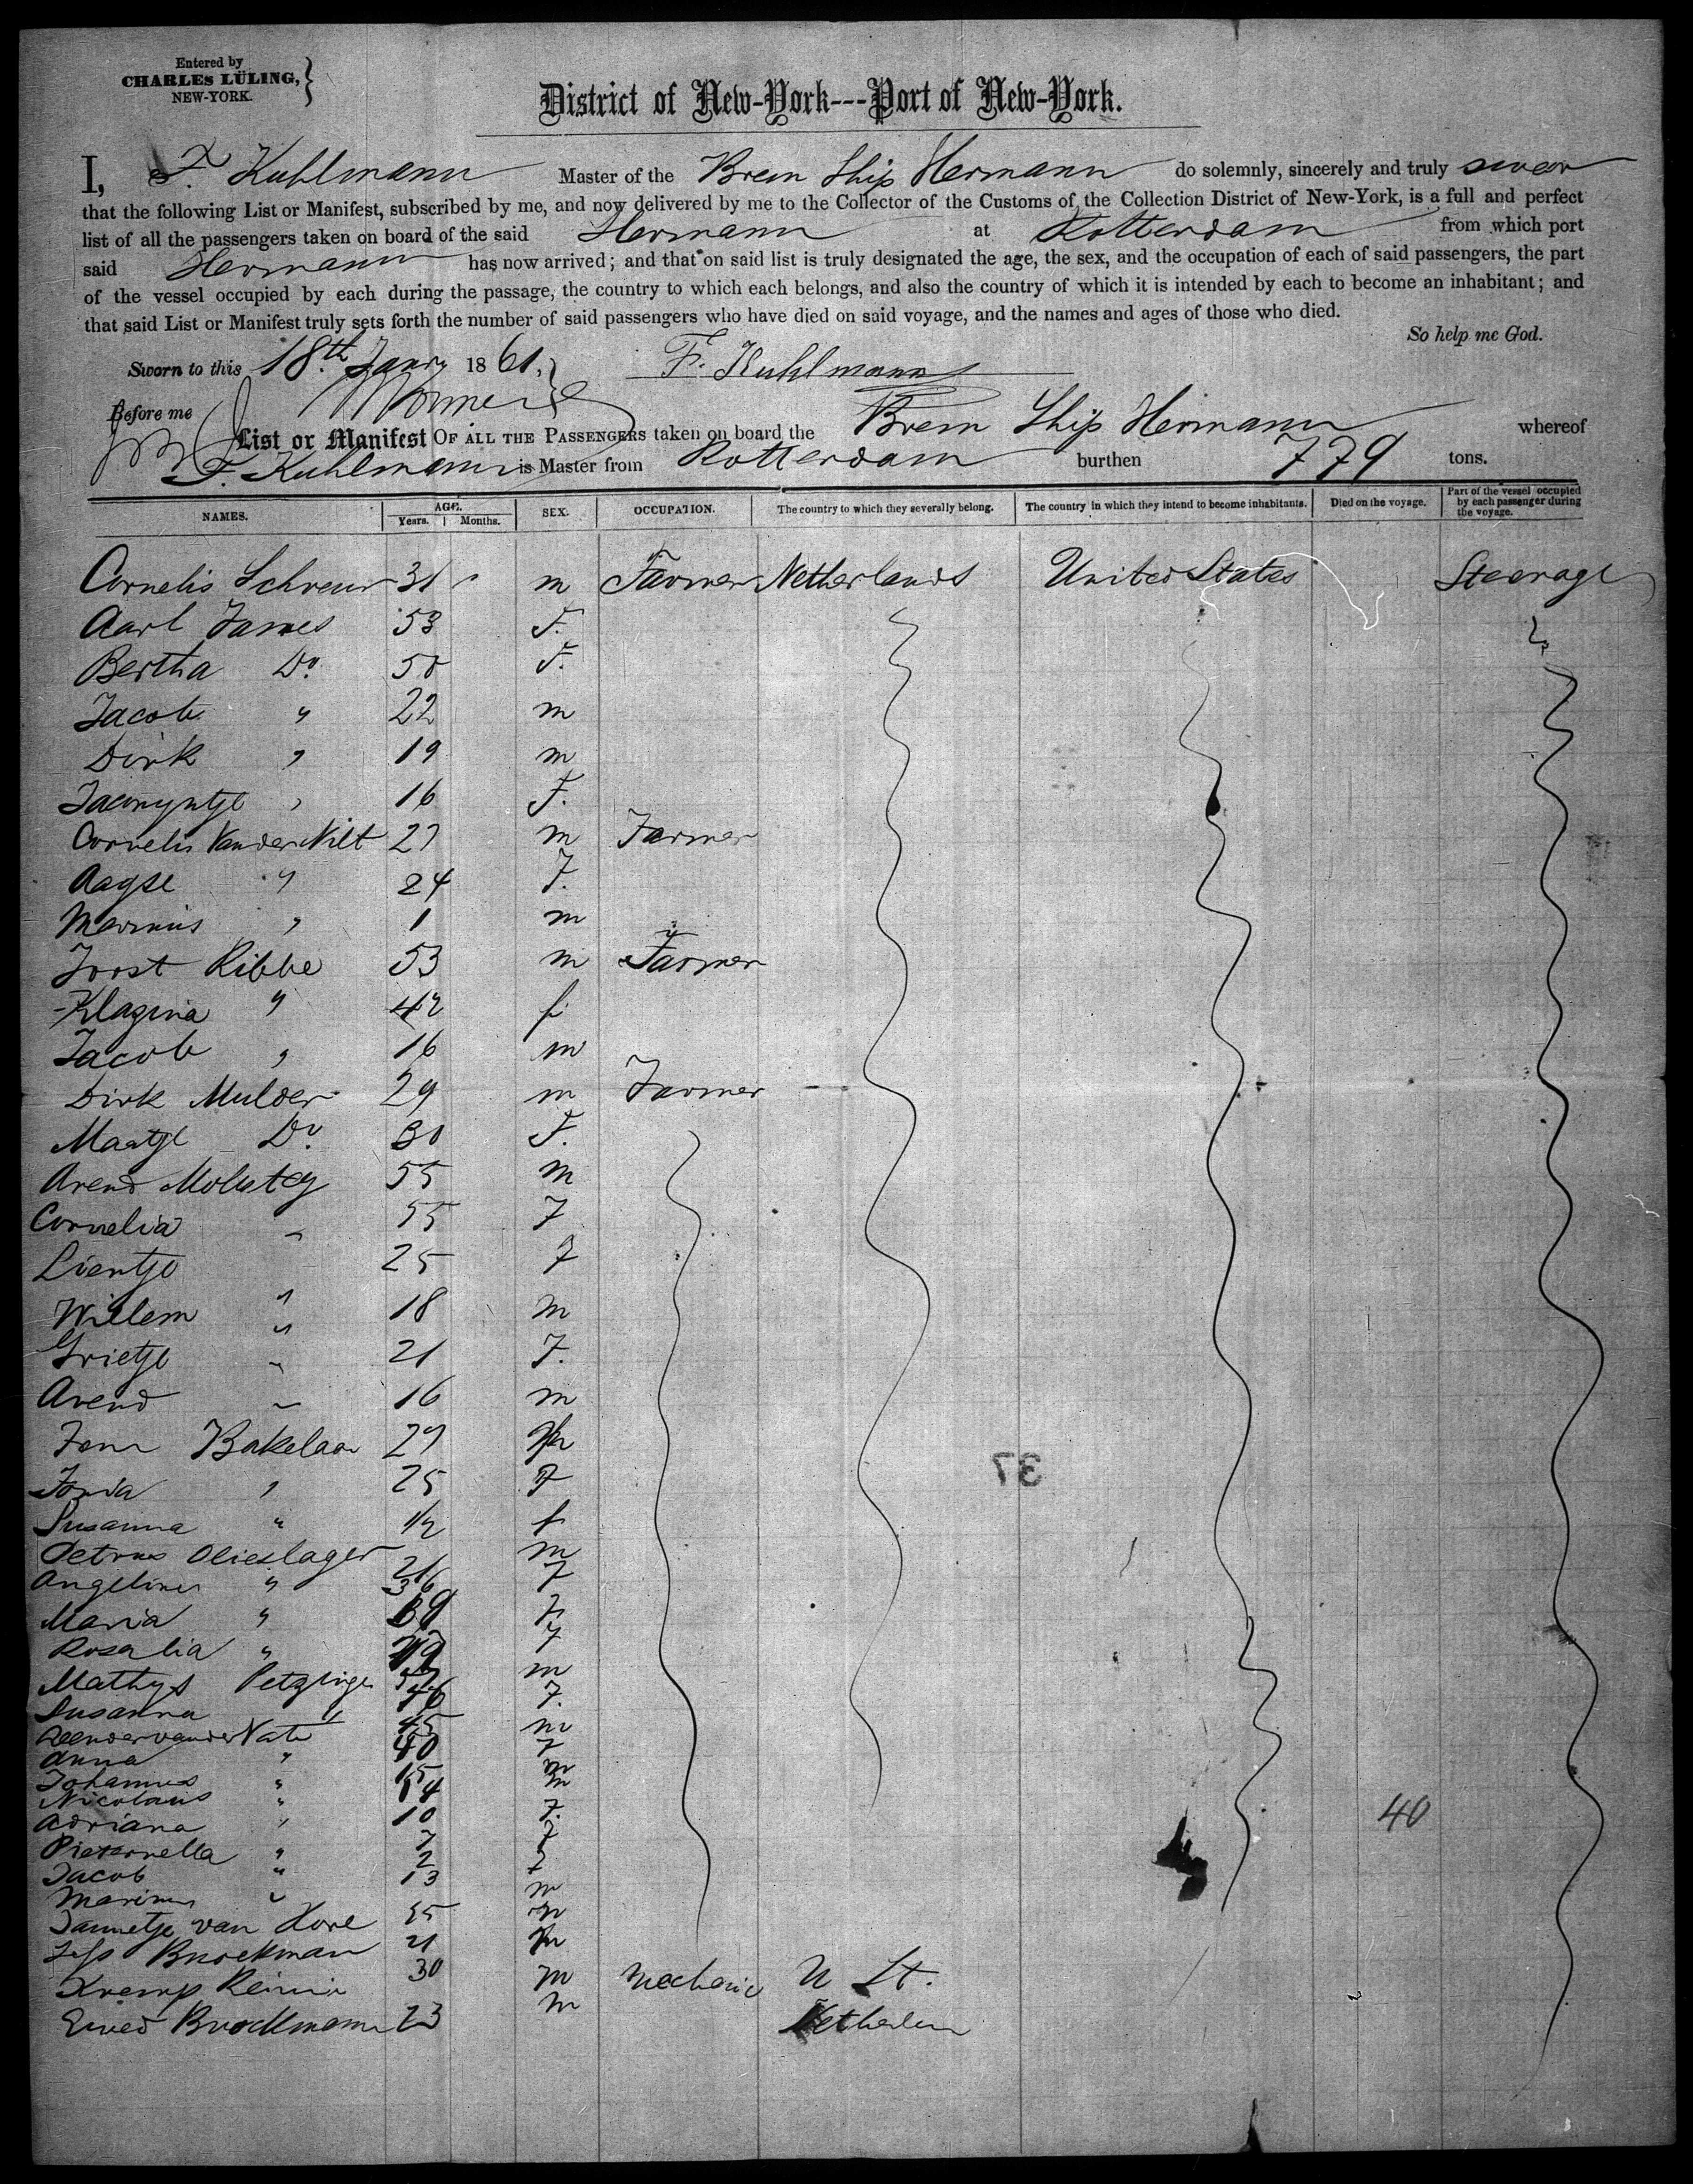 Entered by
CHARLES LÜLING,
NEW-YORK.
District of New-York---Port of New-York.
I, F. Kuhlmann Master of the Brem Ship Hermann do solemnly, sincerely and truly swear
that the following List or Manifest, subscribed by me, and now delivered by me to the Collector of the Customs of the Collection District of New-York, is a full and perfect
list of all the passengers taken on board of the said Hermann at Rotterdam from which port
said Hermann has now arrived; and that on said list is truly designated the age, the sex, and the occupation of each of said passengers, the part
of the vessel occupied by each during the passage, the country to which each belongs, and also the country of which it is intended by each to become an inhabitant; and
that said List or Manifest truly sets forth the number of said passengers who have died on said voyage, and the names and ages of those who died.
So help me God.
Sworn to this 18th Janry 1861. F. Kuhlmann
Before me
List or Manifest OF ALL THE PASSENGERS taken on board the Brem Ship Hermann whereof
F. Kuhlmann is Master from Rotterdam burthen 779 tons.
NAMES. AGE. Years. Months. SEX. OCCUPATION. The country to which they severally belong. The country in which they intend to become inhabitants. Died on the voyage. Part of the vessel occupied by each passenger during the voyage.
Cornelis Schreur 31 m Farmer Netherlands United States Steerage
Aart James 53 F.
Bertha Do. 50 F.
Jacob " 22 m
Dirk " 19 m
Jacomyntje " 16 F.
Cornelis Van der Nilt 27 m Farmer
Aagse " 24 F.
Marinus " 1 m
Joost Ribbe 53 m Farmer
Klazina " 42 f
Jacob " 16 m
Dirk Mulder 29 m Farmer
Maatje Do. 30 F.
Arend 55 m
Cornelia " 55 F
Lientje 25 F
Willem " 18 m
Grietje " 21 F.
Arend " 16 m
Bakelaar 27 m
" 25 F
Susanna " 1/2 f
Petrus Olieslager m
Angelina " 36 F
Maria " F
Rosalia " F
Mathys m
Susanna " 46 F.
vander 45 m
Anna " 40 F
Johannes " 15 m
Nicolaus " 14 m
Adriana " 10 F.
Pieternella " 7 F
Jacob " 2
Marinus " 13 m
Jannetje van m
Broekman 21 m
30 m Mechanic U St.
Brockmann 23 m Netherlan
37
40